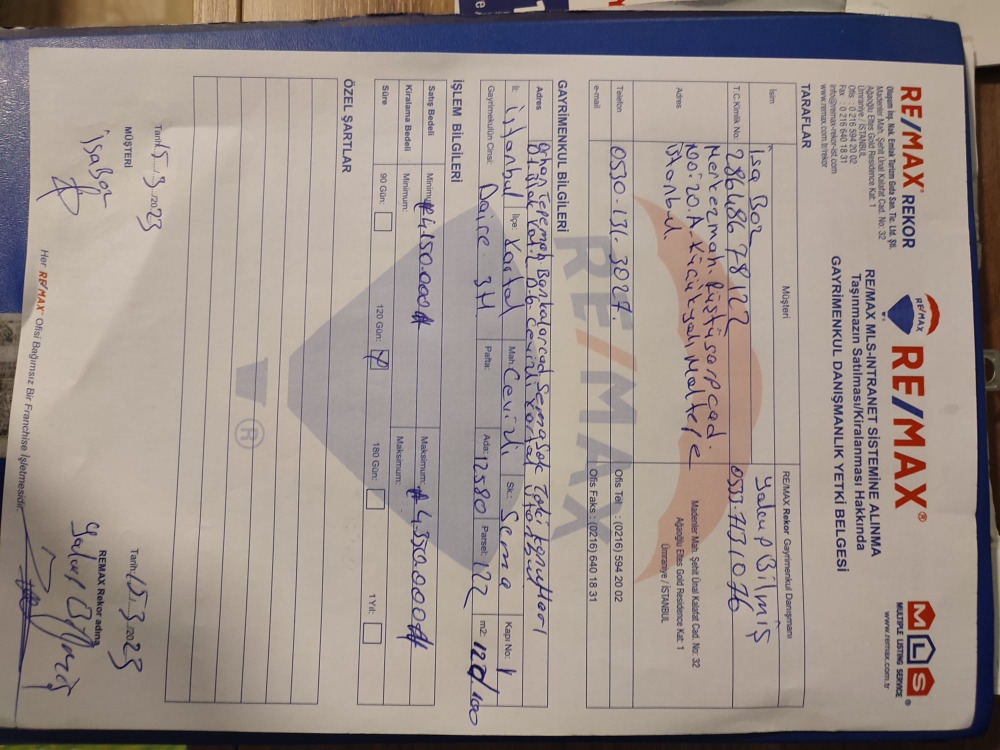 RE/MAX REKOR
Olaşım İnş. Nak. Emlak Turizm Gıda San. Tic. Ltd. Şti.
Madenler Mah. Şehit Ünal Kalafat Cad. No: 32
Ağaoğlu Eltes Gold Residence Kat: 1
Ümraniye / İSTANBUL
Ofis : 0 216 594 20 02
Fax : 0 216 640 18 31
info@remax-rekor-ist.com
www.remax.com.tr/rekor
RE/MAX
RE/MAX®
RE/MAX MLS-INTRANET SİSTEMİNE ALINMA
Taşınmazın Satılması/Kiralanması Hakkında
GAYRİMENKUL DANIŞMANLIK YETKİ BELGESİ
MLS®
MULTIPLE LISTING SERVICE
www.remax.com.tr
TARAFLAR
Müşteri
RE/MAX Rekor Gayrimenkul Danışmanı
İsim
İsa Boz
Yakup Bilmiş
T.C.Kimlik No:
28648678122
0533.7731076
Adres
Merkez mah. Rüştü sarp cad.
No: 20.A Küçükyalı Maltepe
istanbul
Madenler Mah. Şehit Ünal Kalafat Cad. No: 32
Ağaoğlu Eltes Gold Residence Kat: 1
Ümraniye / İSTANBUL
Telefon
0530-131.3027.
Ofis Tel : (0216) 594 20 02
e-mail
Ofis Faks : (0216) 640 18 31
GAYRİMENKUL BİLGİLERİ
Adres
Orhan Tepe mah Bankalar cad Sema Sok Toki konutları
D.6. Cevizli Kartal istanbul
İl: istanbul İlçe: Kartal Mah: Cevizli Sk.: Sema Kapı No: 1
Gayrimenkulün Cinsi: Daire 3+1 Pafta: Ada: 12580 Parsel: 122 m2: 120/100
İŞLEM BİLGİLERİ
Satış Bedeli Minimum: 4.150.000 Maksimum: 4.350.000
Kiralama Bedeli Minimum: Maksimum:
Süre 90 Gün: 120 Gün: 180 Gün: 1 Yıl:
ÖZEL ŞARTLAR
RE/MAX
®
Tarih: 15.3/2023
MÜŞTERİ
isa Boz
Tarih: 15.3/2023
REMAX Rekor adına
Yakup Bilmiş
Her RE/MAX® Ofisi Bağımsız Bir Franchise İşletmesidir.